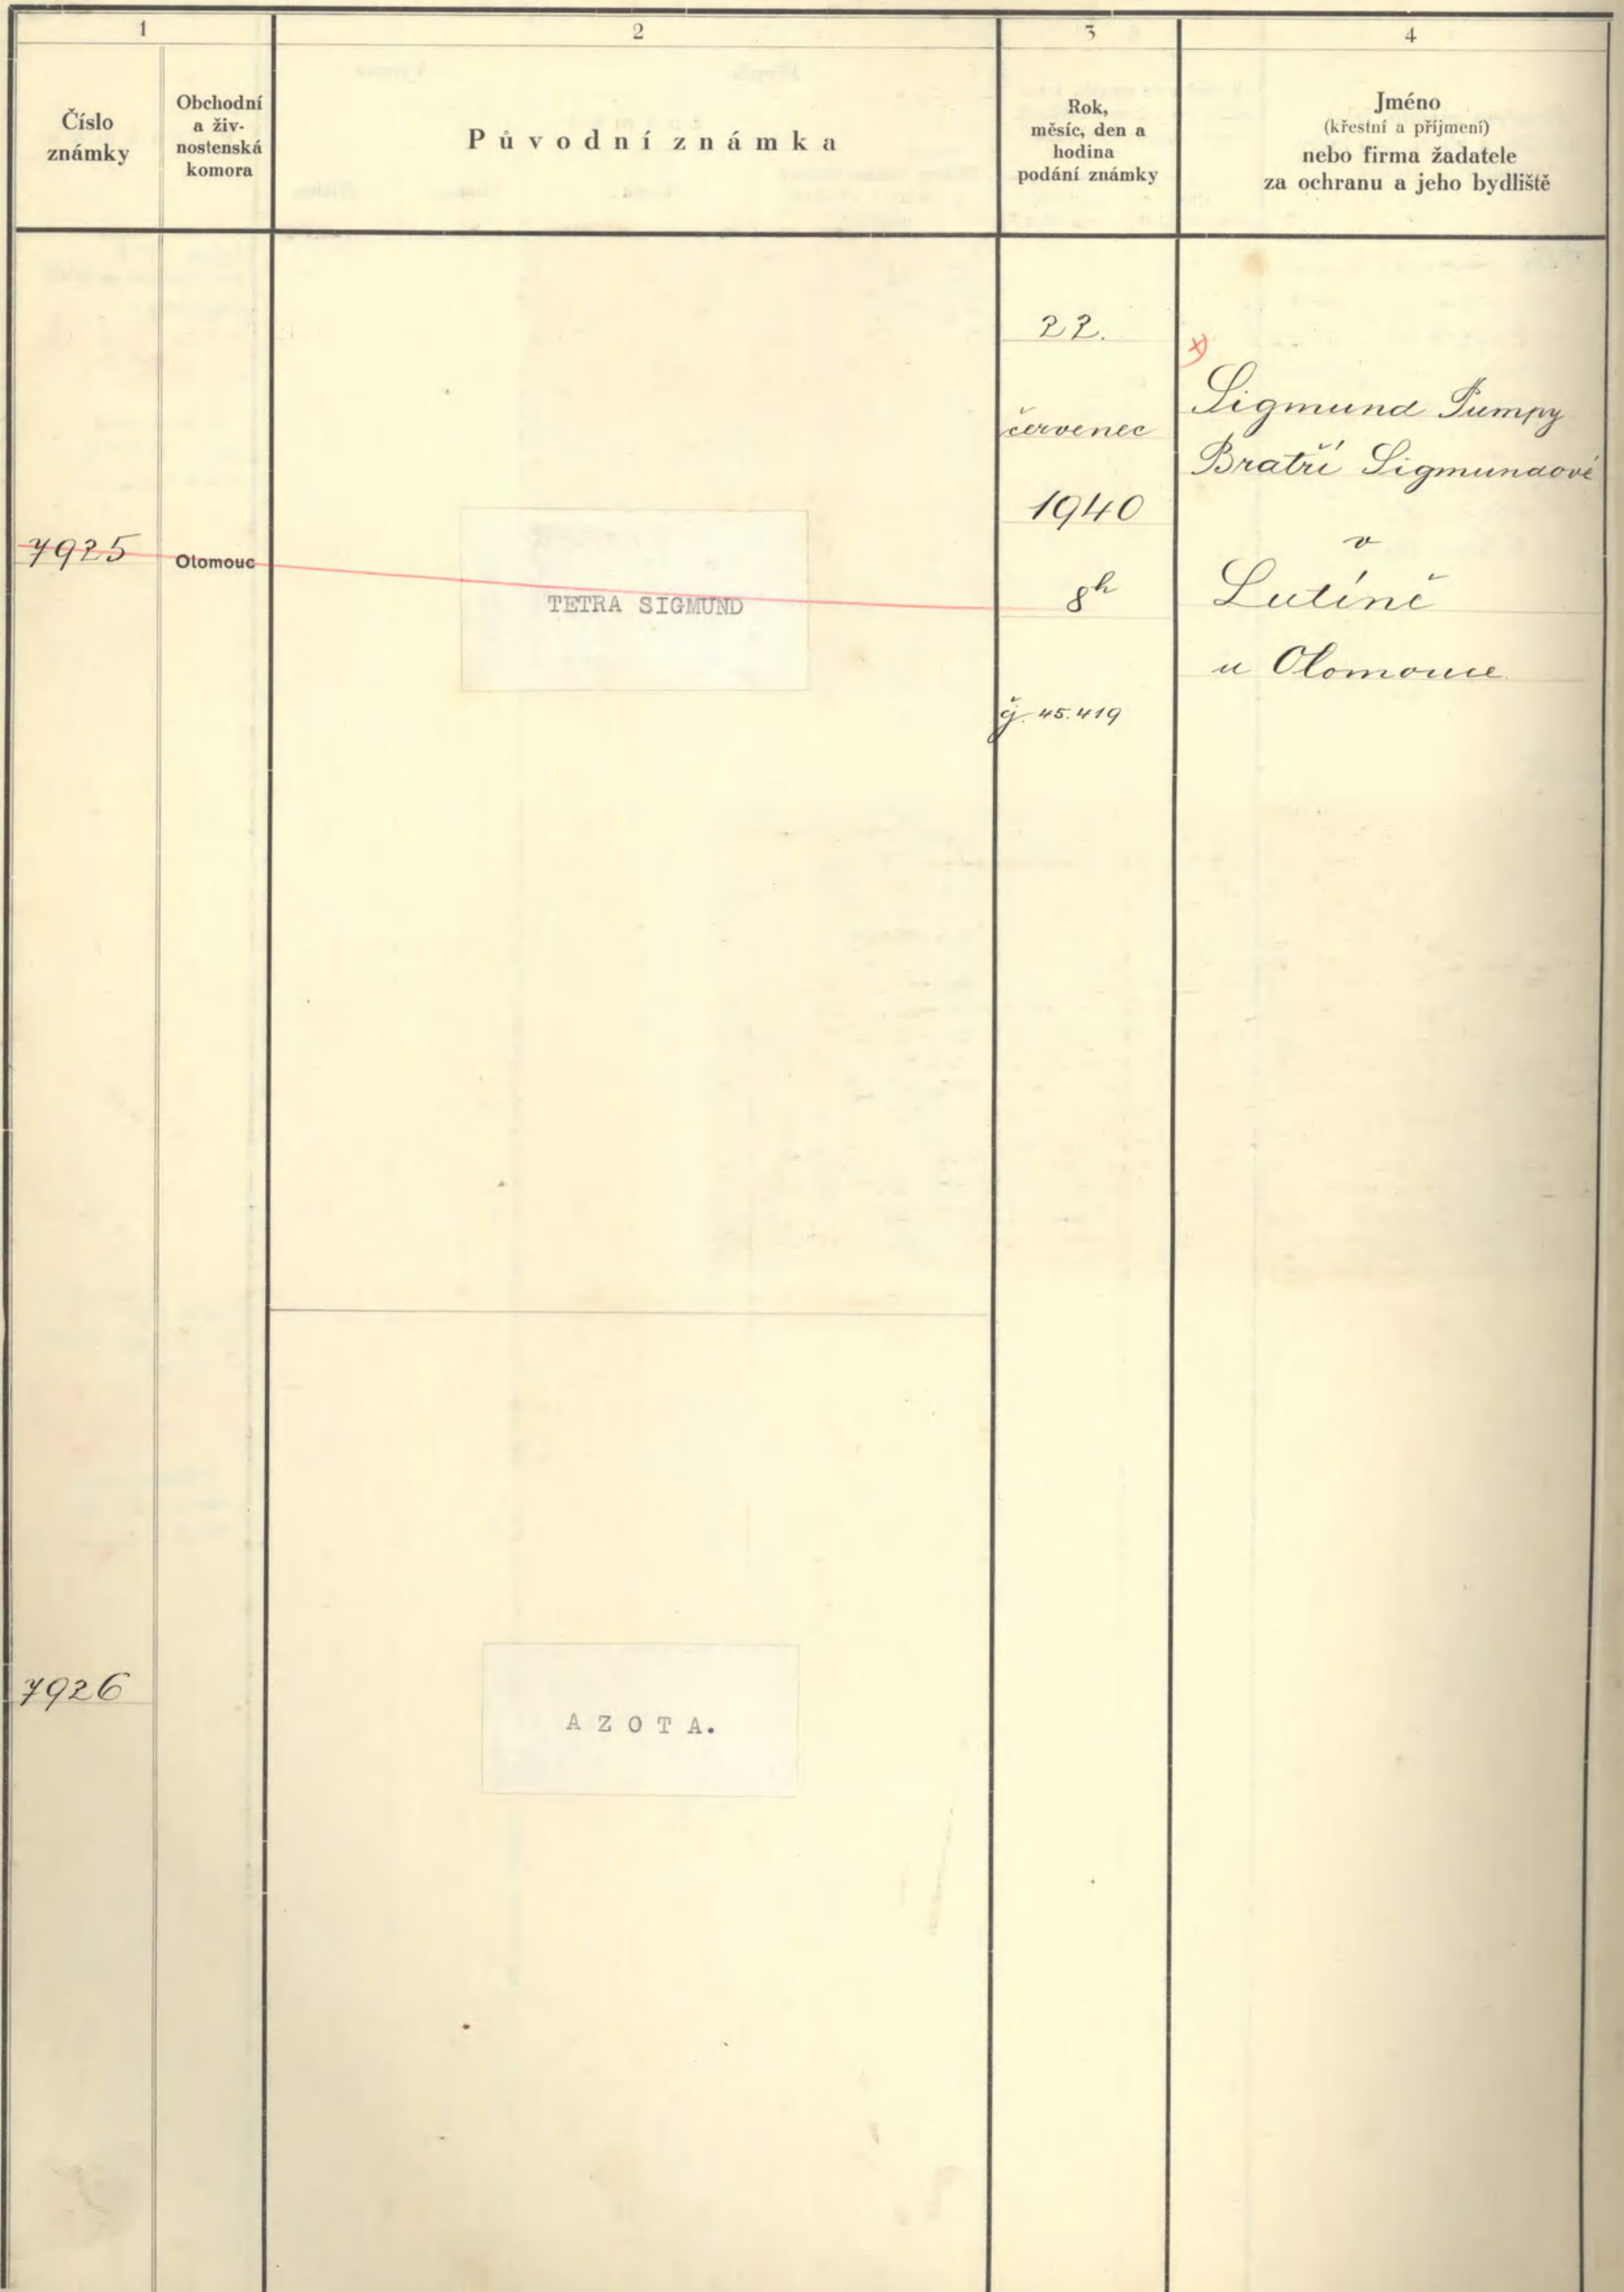 1
2
3
4
Číslo
známky
Obchodní
a živ-
nostenská
komora
Původní známka
Rok,
měsíc, den a
hodina
podání známky
Jméno
(křestní a příjmení)
nebo firma žadatele
za ochranu a jeho bydliště
7925
Olomouc
TETRA SIGMUND
22.
červenec
1940
8h
čj. 45.419
x)
Sigmund Pumpy
Bratří Sigmundové
v
Lutíně
u Olomouce.
7926
A Z O T A.